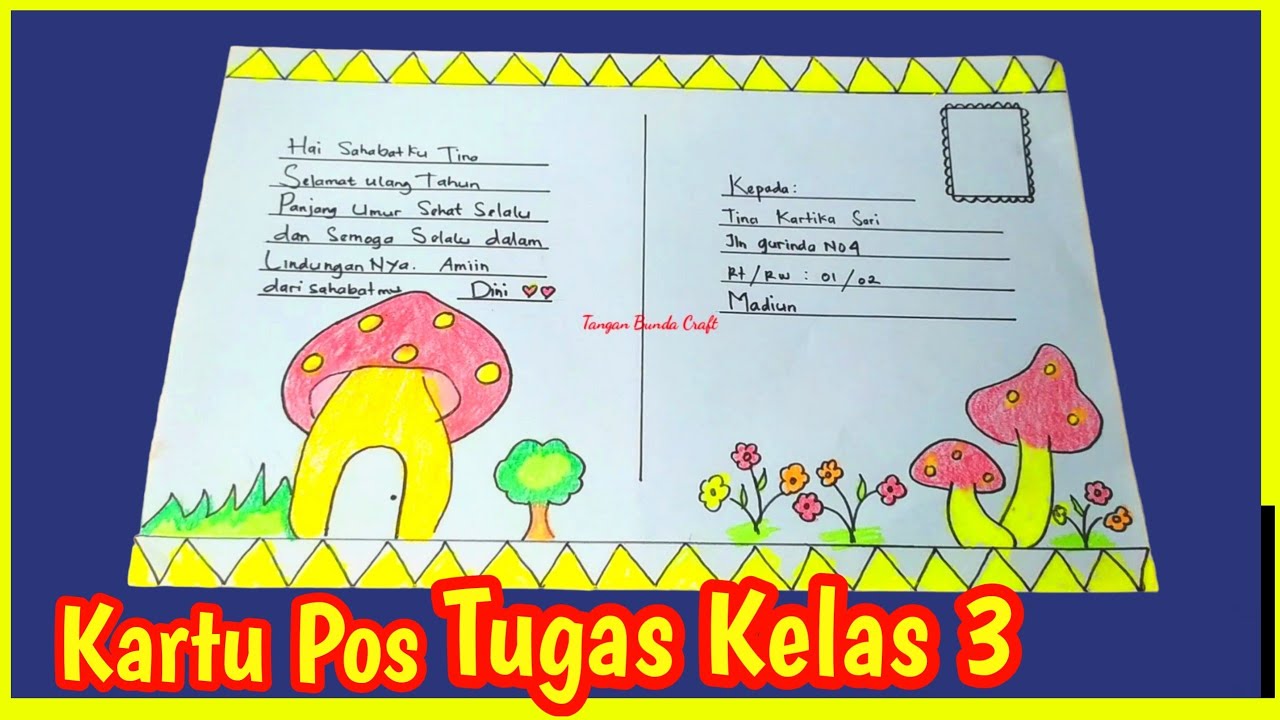 Hai Sahabatku Tina
Selamat ulang Tahun
Panjang Umur Sehat Selalu
dan Semoga Selalu dalam
LindunganNya. Amiin
dari sahabatmu Dini
Kepada:
Tina Kartika Sari
Jln gurinda No4
Rt/Rw : 01/02
Madiun
Tangan Bunda Craft
Kartu Pos Tugas Kelas 3